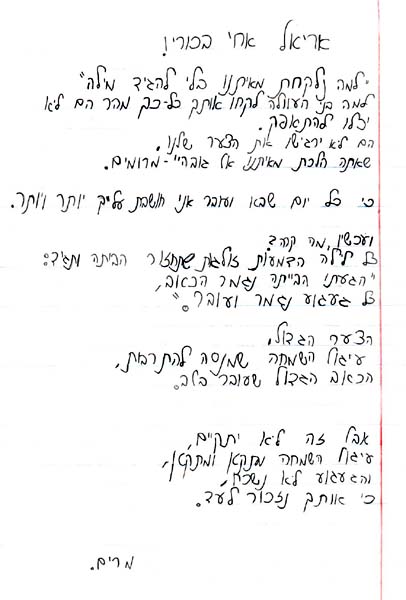 אריאל אחי בכורי!
"למה נלקחת מאיתנו בלי להגיד מילה"
למה בני העוולה לקחו אותך כל-כך מהר הם לא
יכלו להתאפק.
הם לא ירגישו את הצער שלנו.
שאתה הלכת מאיתנו אל גובהיי-מרומים.
כי כל יום שבא ועובר אני חושבת עליך יותר ויותר.
ועכשיו, מה קרה?
כל לילה הדמעות זולגות שתחזור הביתה ותגיד:
"הגעתי הבייתה נגמר הכאוב,
כל געגוע נגמר ועובר."
הצער הגדול,
עיגול השמחה שמנסה להתרבות,
הכאוב הגדול שעובר בלב.
אבל זה לא יתקיים,
עיגול השמחה מתקטן ומתקטן,
והגעגוע לא נשכח,
כי אותך נזכור לעד.
מרים.